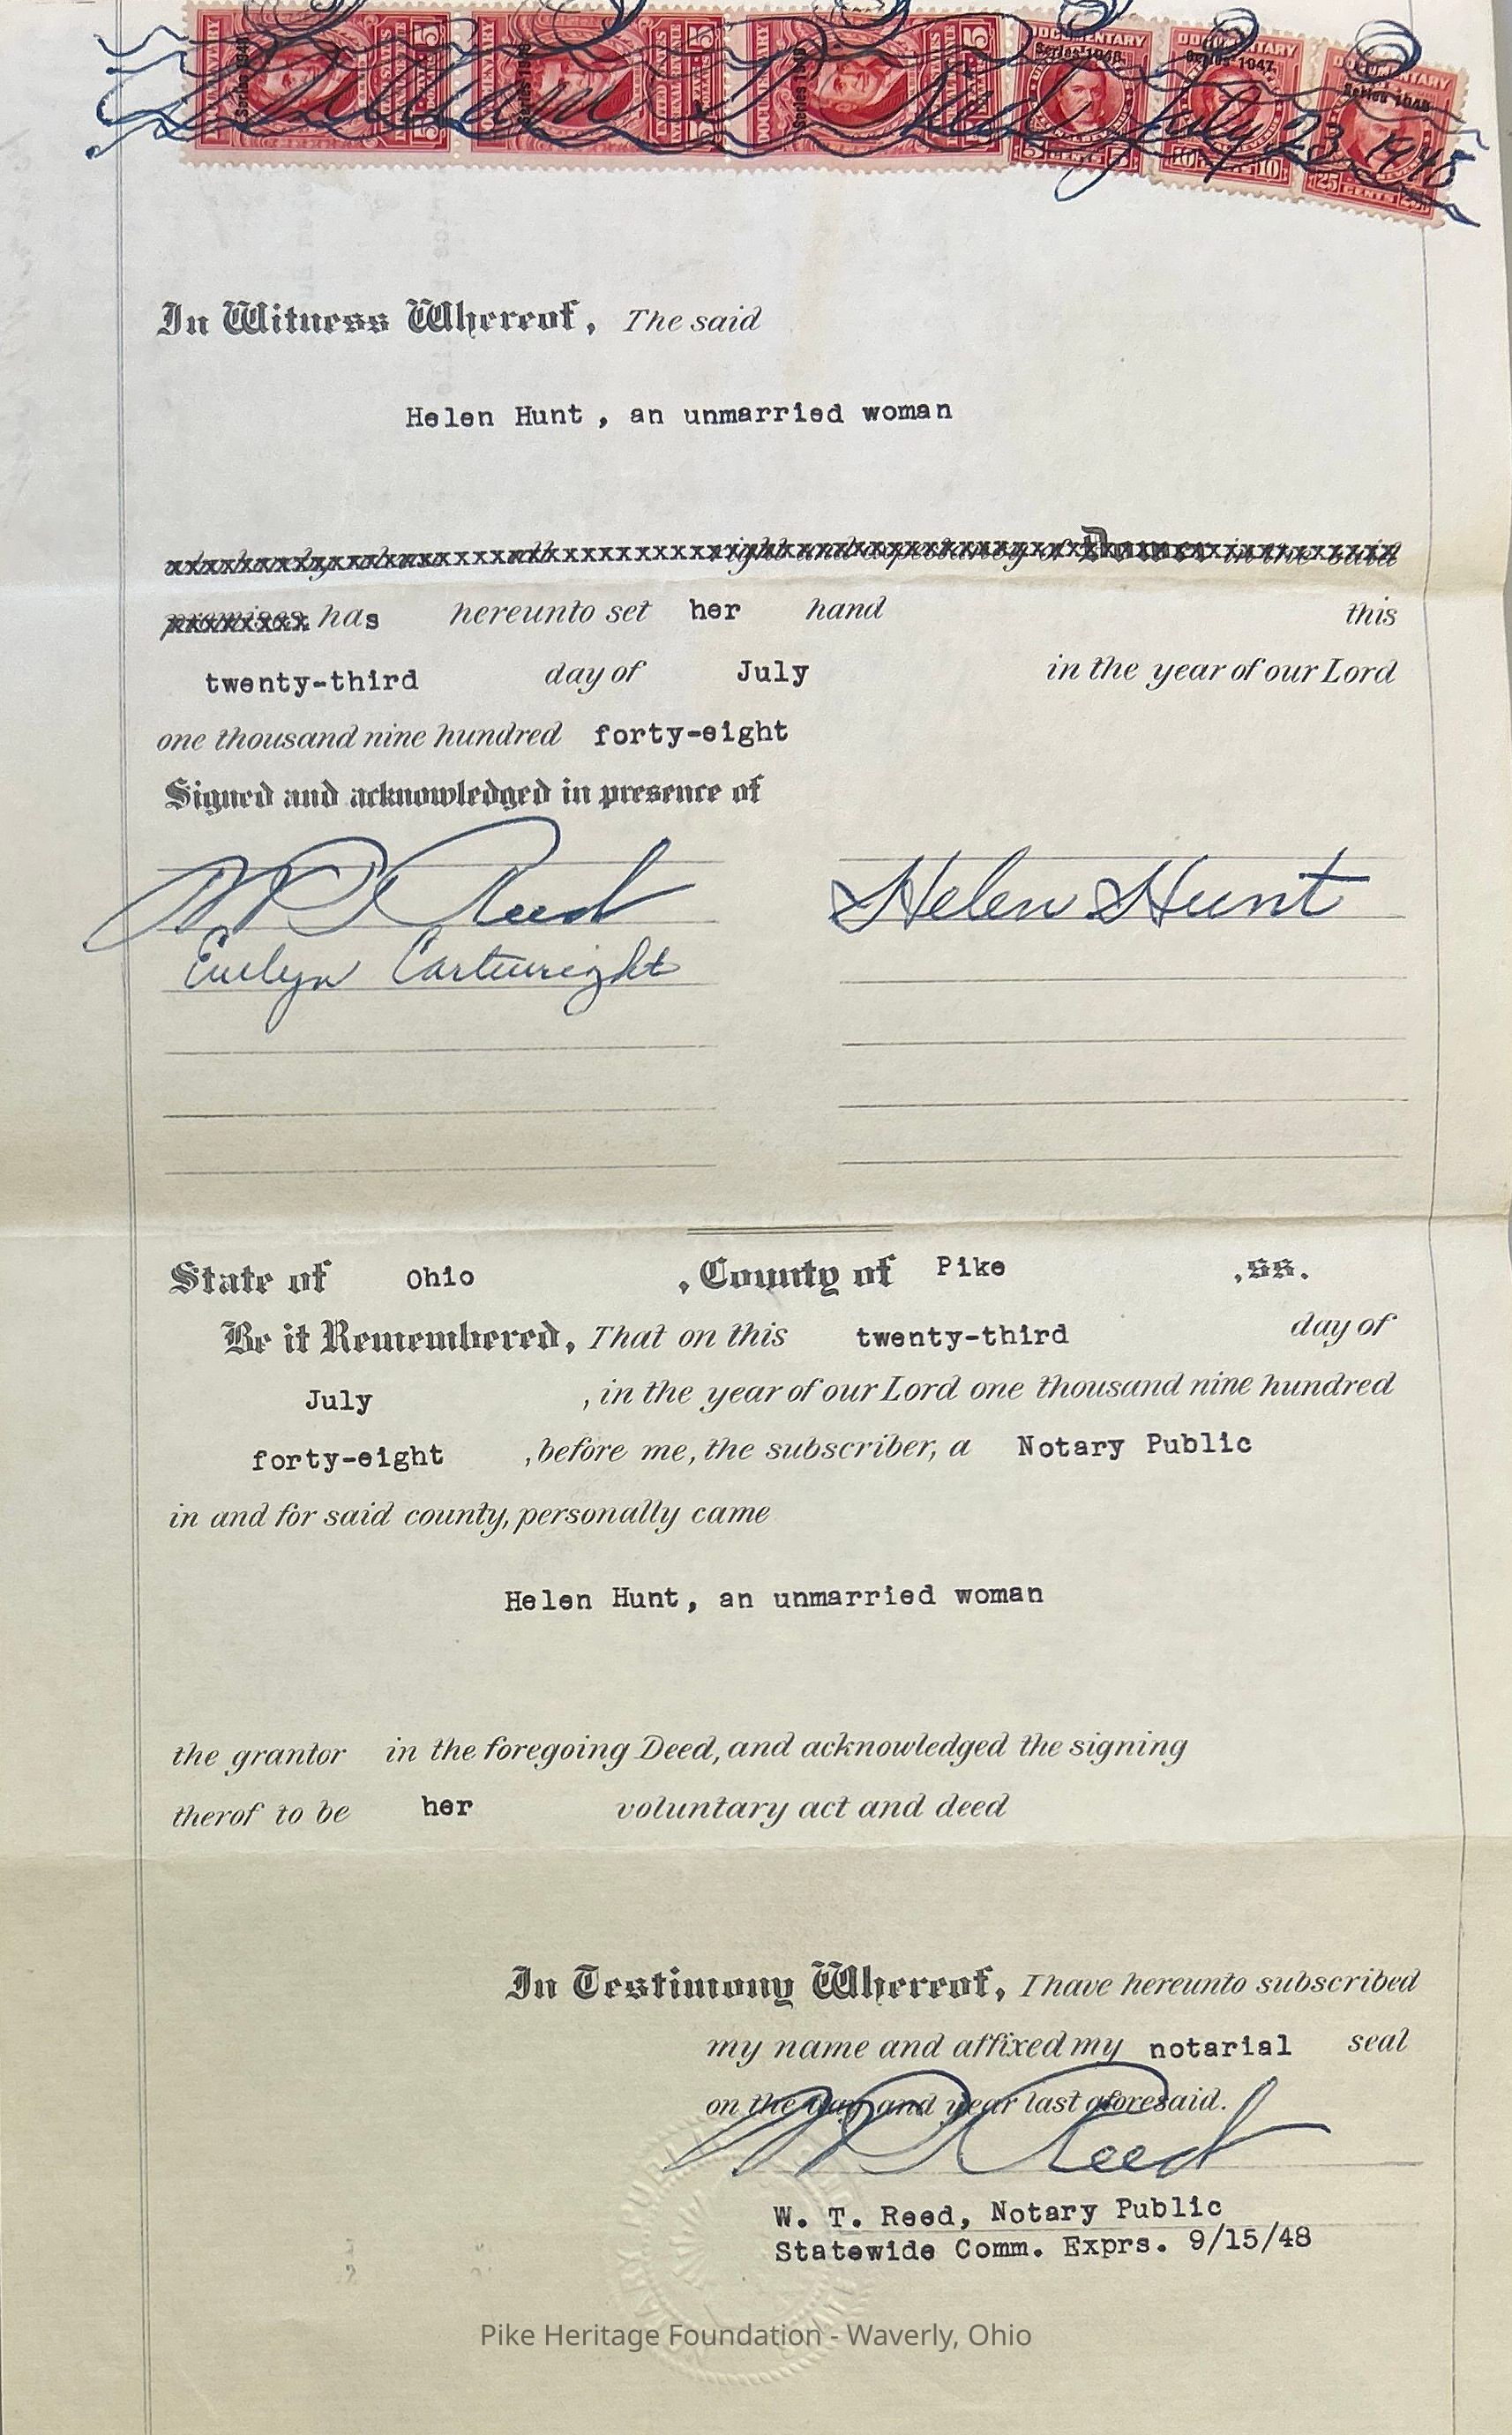 Series 1940 DOCUMENTARY Series 1946 DOCUMENTARY Series 1947 DOCUMENTARY Series 1948
10 10 25 CENTS
William T Reed July 23 1948
In Witness Whereof, The said
Helen Hunt , an unmarried woman
right and expectancy of Dower in the said
premises has hereunto set her hand this
twenty-third day of July in the year of our Lord
one thousand nine hundred forty-eight
Signed and acknowledged in presence of
W T Reed Helen Hunt
Evelyn Cartwright
State of Ohio , County of Pike , ss.
Be it Remembered, That on this twenty-third day of
July , in the year of our Lord one thousand nine hundred
forty-eight , before me, the subscriber, a Notary Public
in and for said county, personally came
Helen Hunt, an unmarried woman
the grantor in the foregoing Deed, and acknowledged the signing
therof to be her voluntary act and deed
In Testimony Whereof, I have hereunto subscribed
my name and affixed my notarial seal
on the day and year last aforesaid.
W T Reed
W. T. Reed, Notary Public
Statewide Comm. Exprs. 9/15/48
Pike Heritage Foundation - Waverly, Ohio